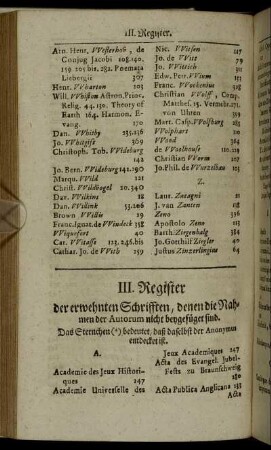 III. Register.
Arn. Henr. VVesterhof, de
Conjug Jacobi 108.140.
159. 205 bis. 282. Poemata
Liebergii 307
Henr. VVharton 103
Will. VVhiston Astron. Prior.
Relig. 44. 150. Theory of
Earth 164. Harmon. E-
vang. 150
Dan. VVhitby 233.236
Jo. VVhitgift 309
Christoph. Tob. VVideburg
142
Jo. Bern. VVideburg 141.190
Marqu. VVild 121
Christ. VVildvogel 20.340
Dav. VVilkins 18
Dan. VVillink 53.206
Brown VVillis 29
Franc. Ignat. de VVindeck 358
VViquefort 40
Car. VVitasse 123. 246. bis
Cathar. Jo. de VVith 259
Nic. VVitsen 247
Jo. de VVitt 79
Jo. VVittich
Edw. Pett. VVium 151
Franc. VVockenius 318
Christian VVolff, Comp.
Matthes. 15. Vermehr. 271.
von Uhren 359
Mart. Casp. VVolfburg 283
VVolphart 20
VVind
de VVoolhouse
Christian VVorm 127
Jo. Phil. de VVurzelbau
Z.
Laur. Zacagni 21
J. van Zanten 68
Zeno 336
Apostolo Zeno 103
Barth. Ziegenbalg 384
Jo. Gotthilf Ziegler 40
Justus Zinzerlingius 64
III. Register
der erwehnten Schrifften, denen die Nah-
men der Autorum nicht beygefüget sind.
Das Sternchen (*) bedeutet, daß daselbst der Anonymus
entdecket ist.
A.
Academie des Jeux Histori-
ques 147
Academie Universelle des
Jeux Academiques 147
Acta des Evangel. Jubel-
Fests zu Braunschweig
180
Acta Publica Anglicana 133
Acta